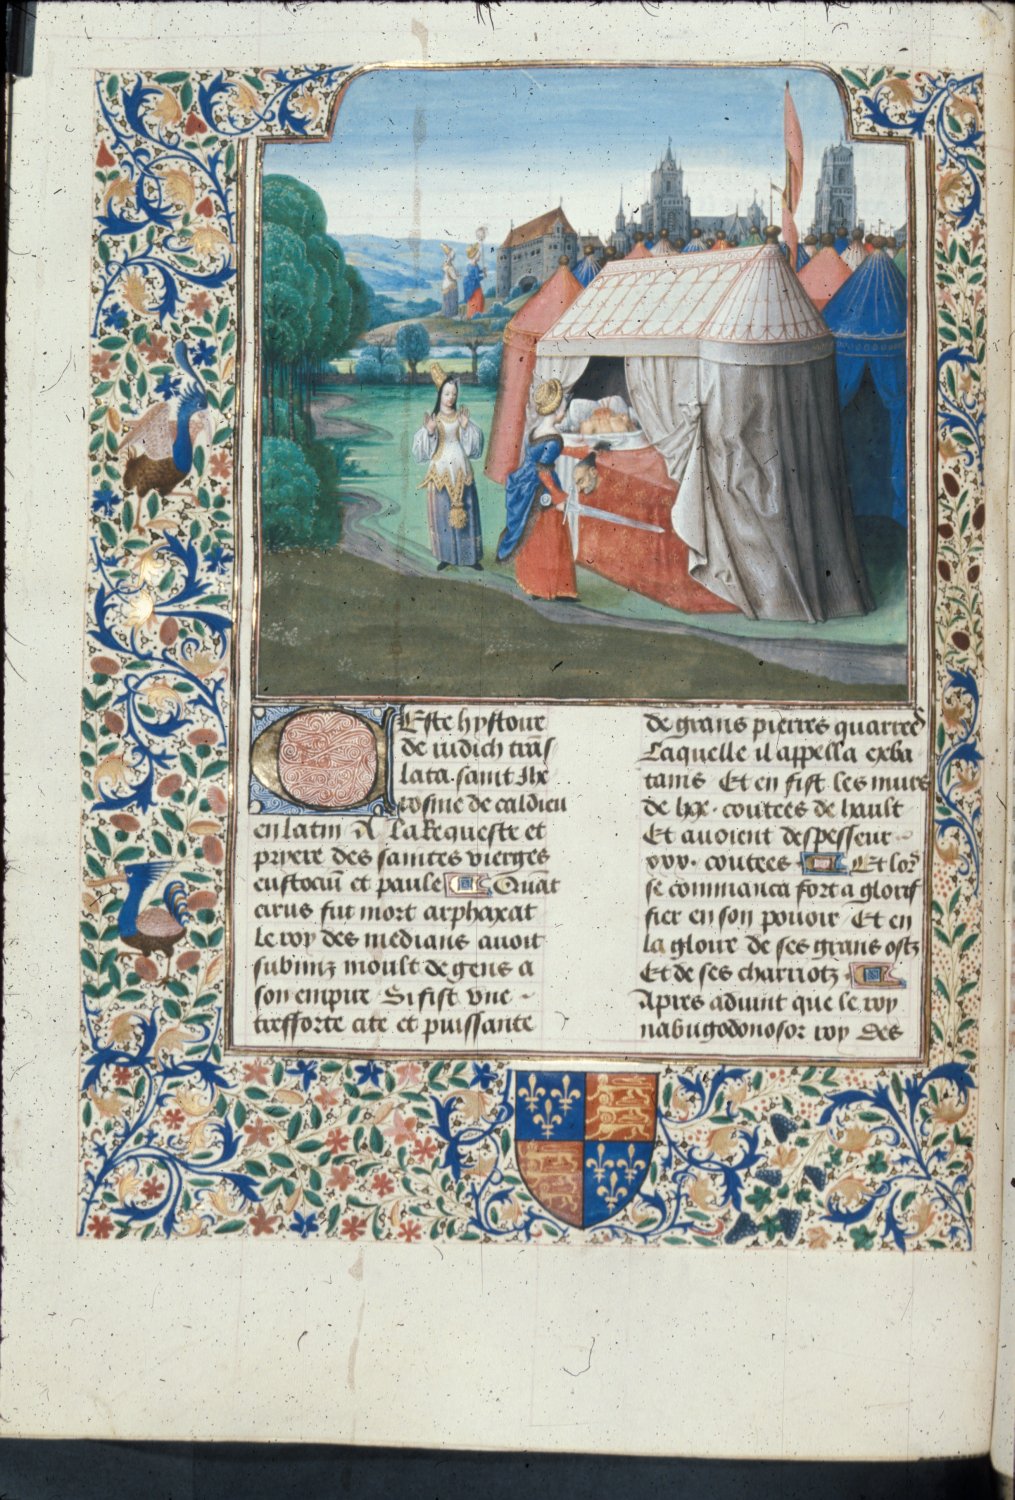 Ceste hystoire
de iudich trãs
lata saint Ihe
rosme de caldieu
en latin A la Requeste et
pryere des saintes vierges
eustociũ et paule Quãt
cirus fut mort arphaxat
Le roy des medians auoit
submiz moult de gens a
son empire Si fist vne
tresforte cite et puissante
de grans pierres quarrees
Laquelle il appella exba
tanis Et en fist les murs
de lxx. coutees de hault
Et auoient despesseur
xxx. coutees Et lors
se commanca fort a glorif
fier en son pouoir Et en
la gloire de ses grans ostz
Et de ses chariotz
Apres aduint que le roy
nabugodonosor roy des